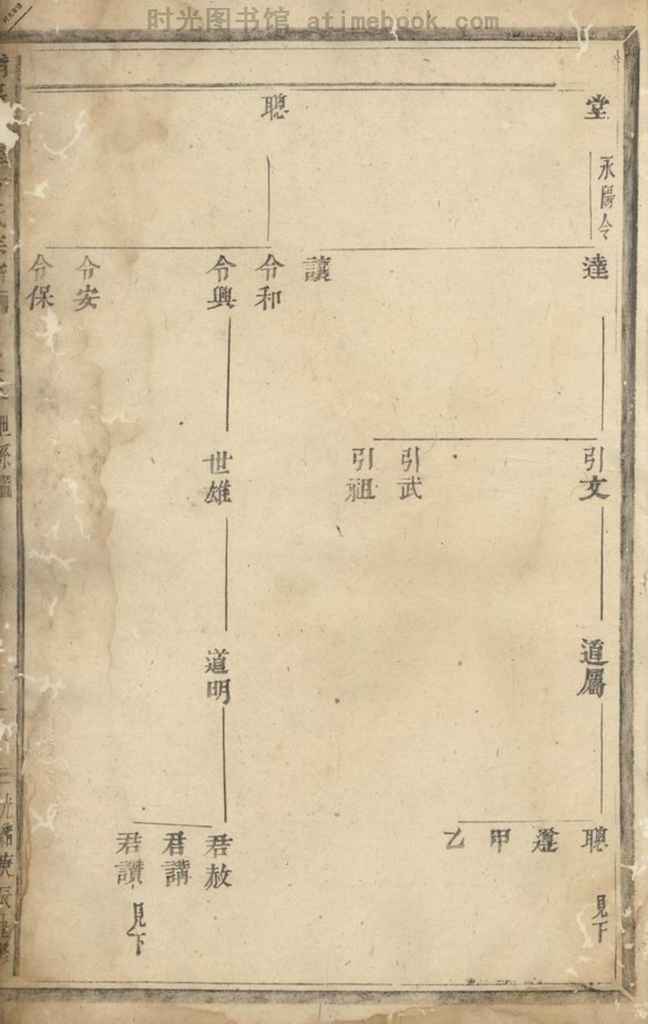 时光图书馆 atimebook.com
堂
永陽令
聰
達
讓
令和
令興
令安
令保
引文
引武
引祖
世雄
道屬
道明
聰
見下
甲
乙
君赦
君講
君讚
見下